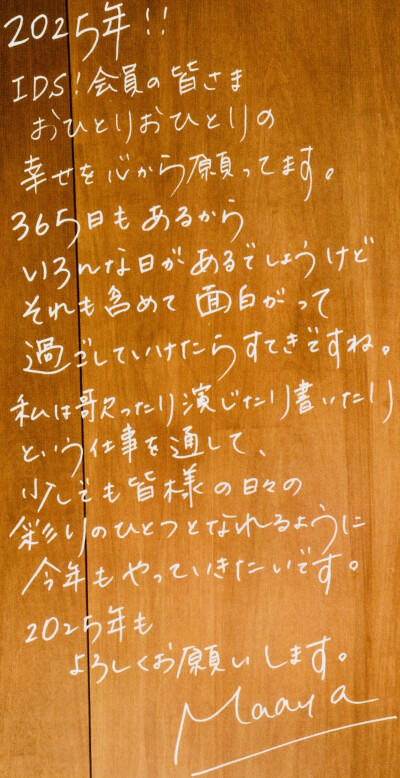 2025年!!
IDS!会員の皆さま
おひとりおひとりの
幸せを心から願ってます。
365日もあるから
いろんな日があるでしょうけど
それも含めて面白がって
過ごしていけたらすてきですね。
私は歌ったり演じたり書いたり
という仕事を通して、
少しでも皆様の日々の
彩りのひとつとなれるように
今年もやっていきたいです。
2025年も
よろしくお願いします。
Maaya